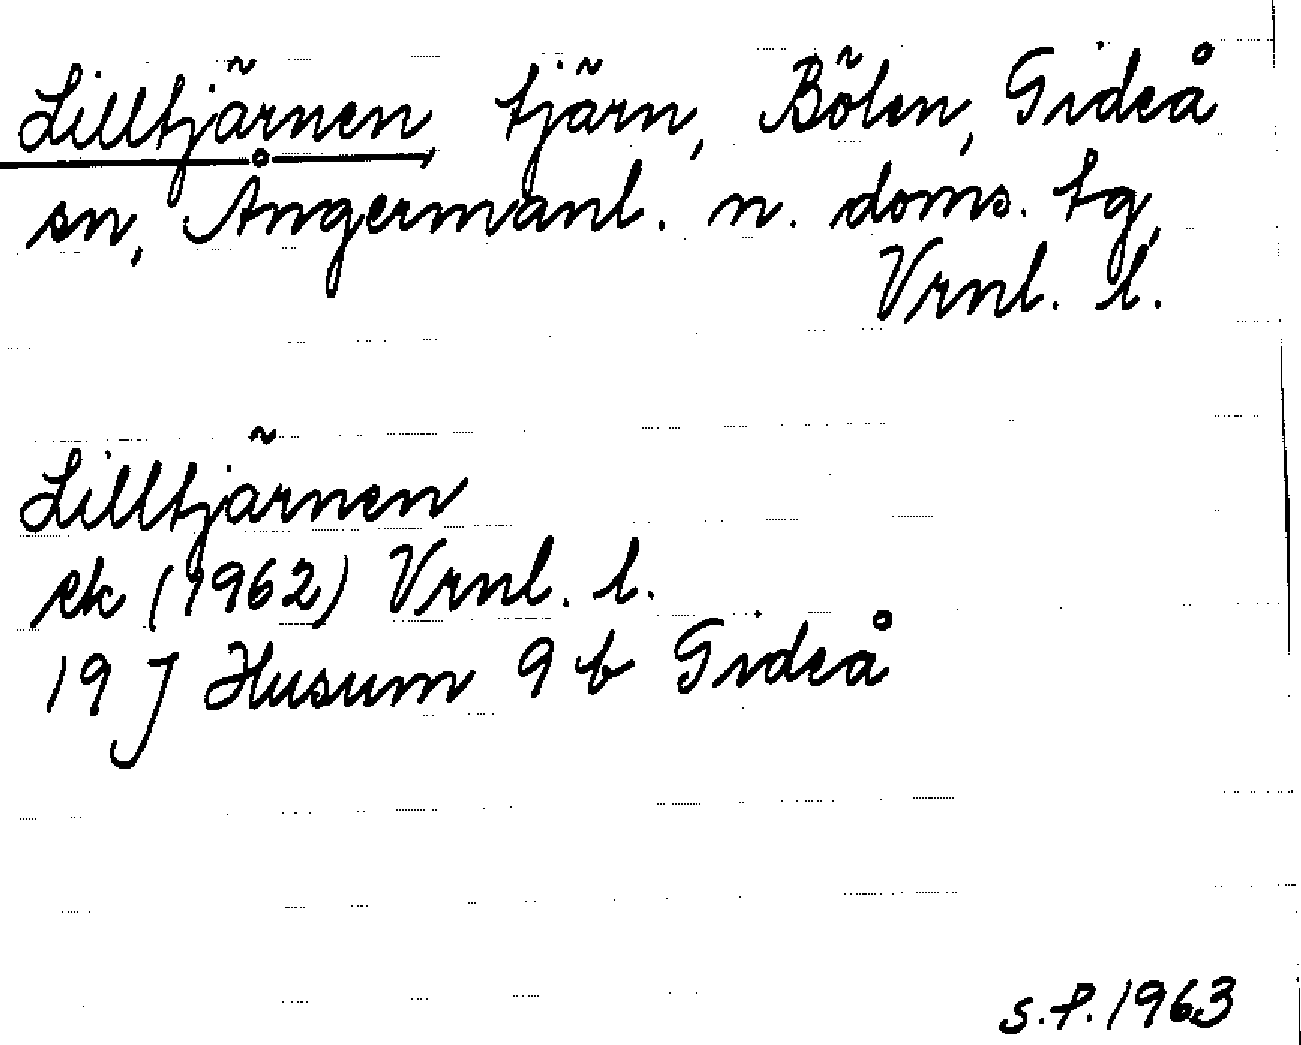 Lilltjärnen, tjärn, Bölen, Gideå
sn, Ångermanl. n. doms. tg,
Vrnl. l.
Lilltjärnen
ek (1962) Vrnl. l.
19 J Husum 9 b Gideå
s.f. 1963